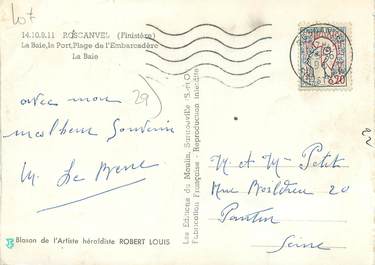 Lot
14.10.9.11 ROSCANVEL (Finistère)
La Baie, le Port, Plage de l'Embarcadère
La Baie
29)
avec mon
meilleur Souvenir
M. Le
Blason de l'Artiste héraldiste ROBERT LOUIS
Les Editions du Moulin, Sannouville (S.-&-O.)
Fabrication Française - Reproduction interdite
0,20
M. et Mme Petit
Rue Boildieu 20
Pantin
Seine